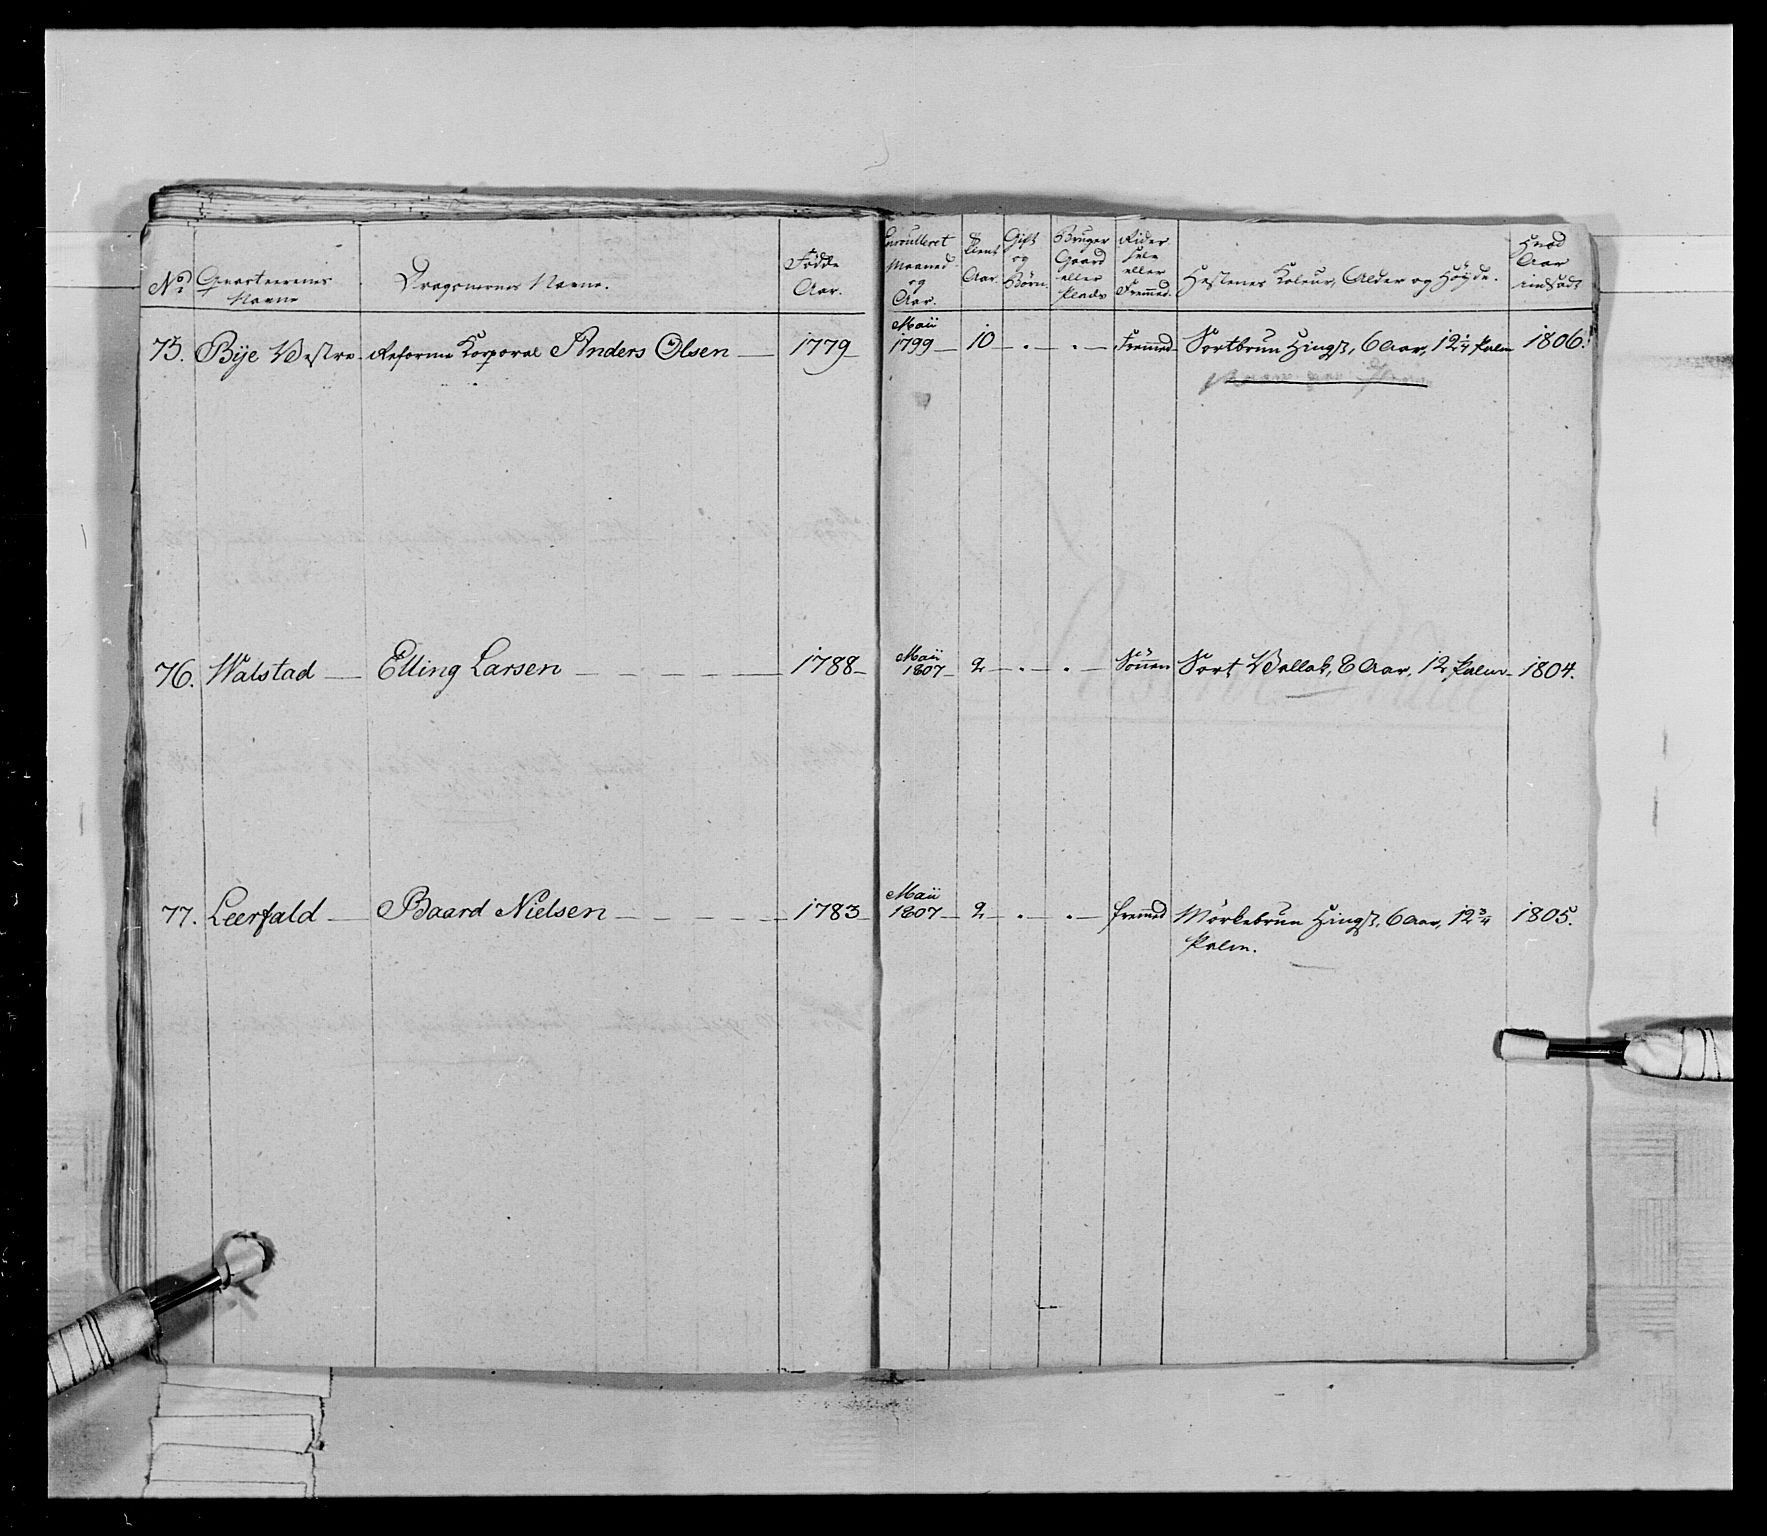 No. Quarteerenes Navne
Dragonernes Navne.
Fødde Aar.
Enroulleret Maaned og Aar.
Tient Aar.
Gift og Børn.
Bruger Gaard eller Plads
Rider selv eller Fremmed.
Hestenes Koleur, Alder og Høyde.
Hvad Aar indsadt
75. Bÿe Vestre Reforme Korporal Anders Olsen 1779 Maii 1799 10 Fremmed Sortbrun Hingst, 6 Aar, 12 1/4 Palm 1806.
76. Walstad Elling Larsen 1788 Maii 1807 2 Sönnen Sort Vallak, 8 Aar, 12 Palm 1804.
77. Leerfald Baard Nielsen 1783 Maii 1807 2 fremmed Mörkebrun Hingst, 6 Aar, 12 3/4 1805.
Palm.